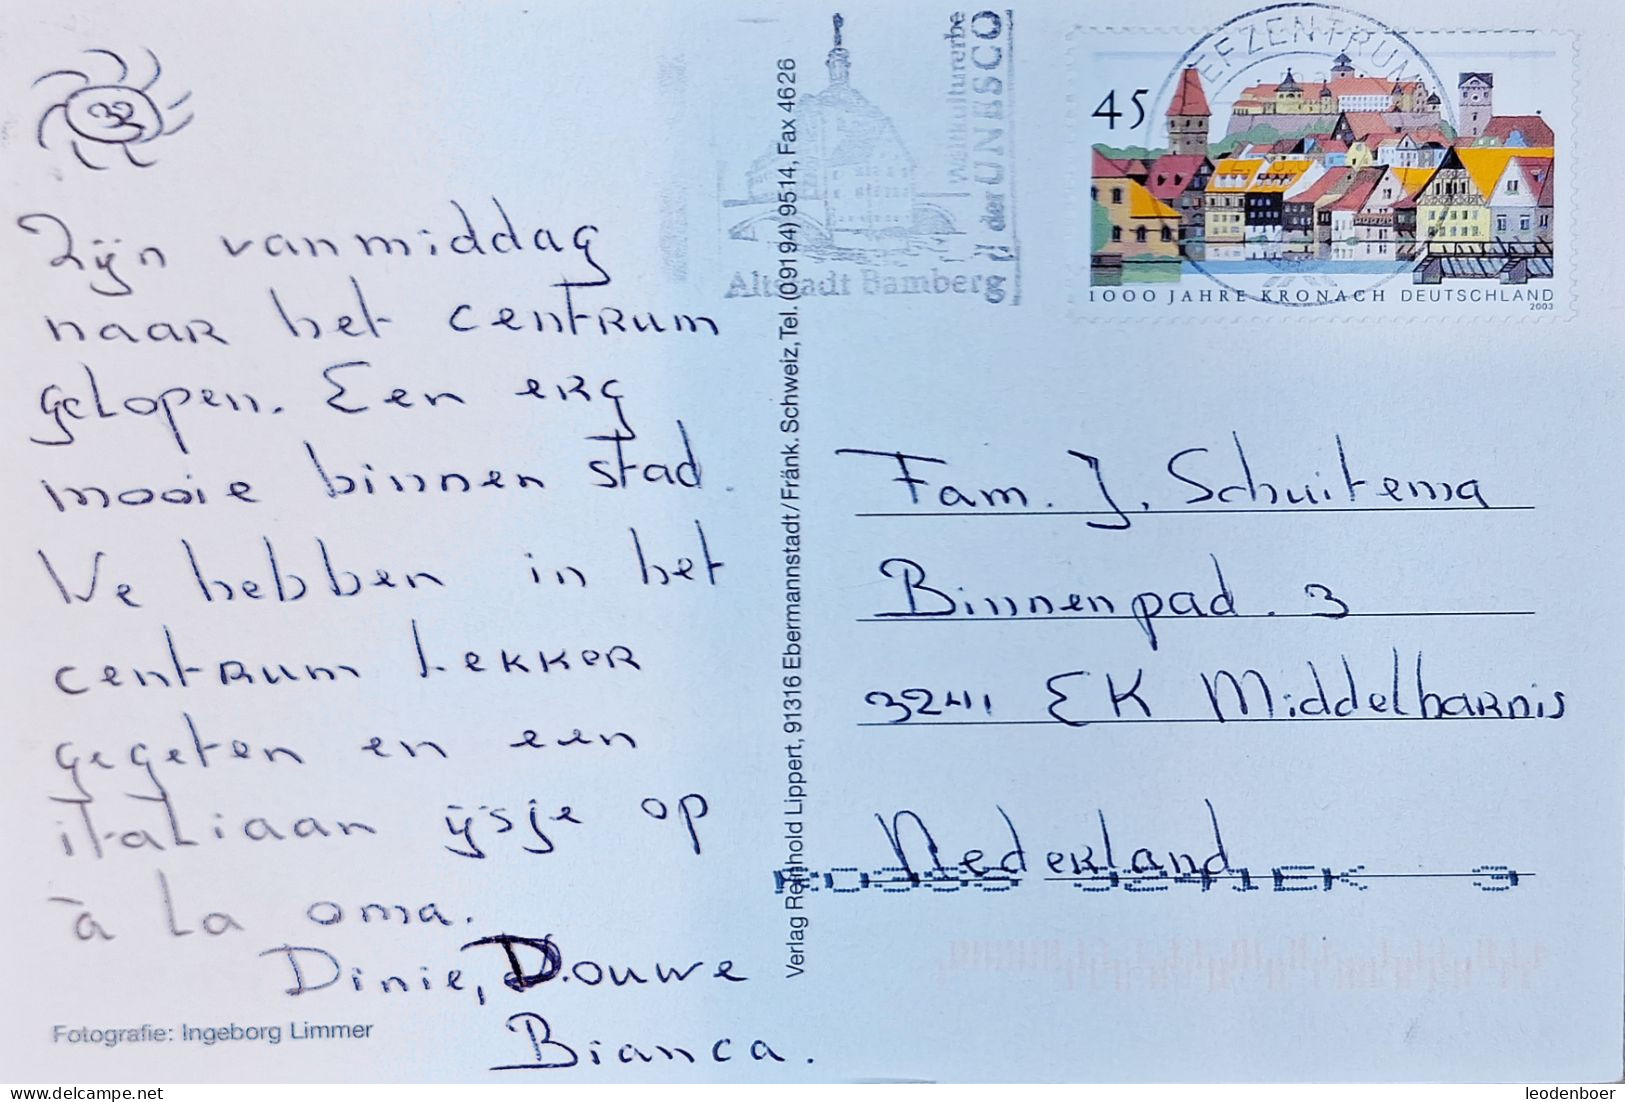 32
Zijn vanmiddag
naar het centrum
gelopen. Een erg
mooie binnen stad.
We hebben in het
centrum lekker
gegeten en een
italiaan ijsje op
à la oma.
Dinie, Douwe
Bianca.
Fotografie: Ingeborg Limmer
Verlag Reinhold Lippert, 91316 Ebermannstadt/Fränk. Schweiz, Tel. (09194) 9514, Fax 4626
Altstadt Bamberg
Weltkulturerbe
der UNESCO
EFZENTRUM
45
1000 JAHRE KRONACH DEUTSCHLAND
2003
Fam. J. Schuitema
Binnenpad. 3
3241 EK Middelharnis
Nederland
3241EK 3
leodenboer